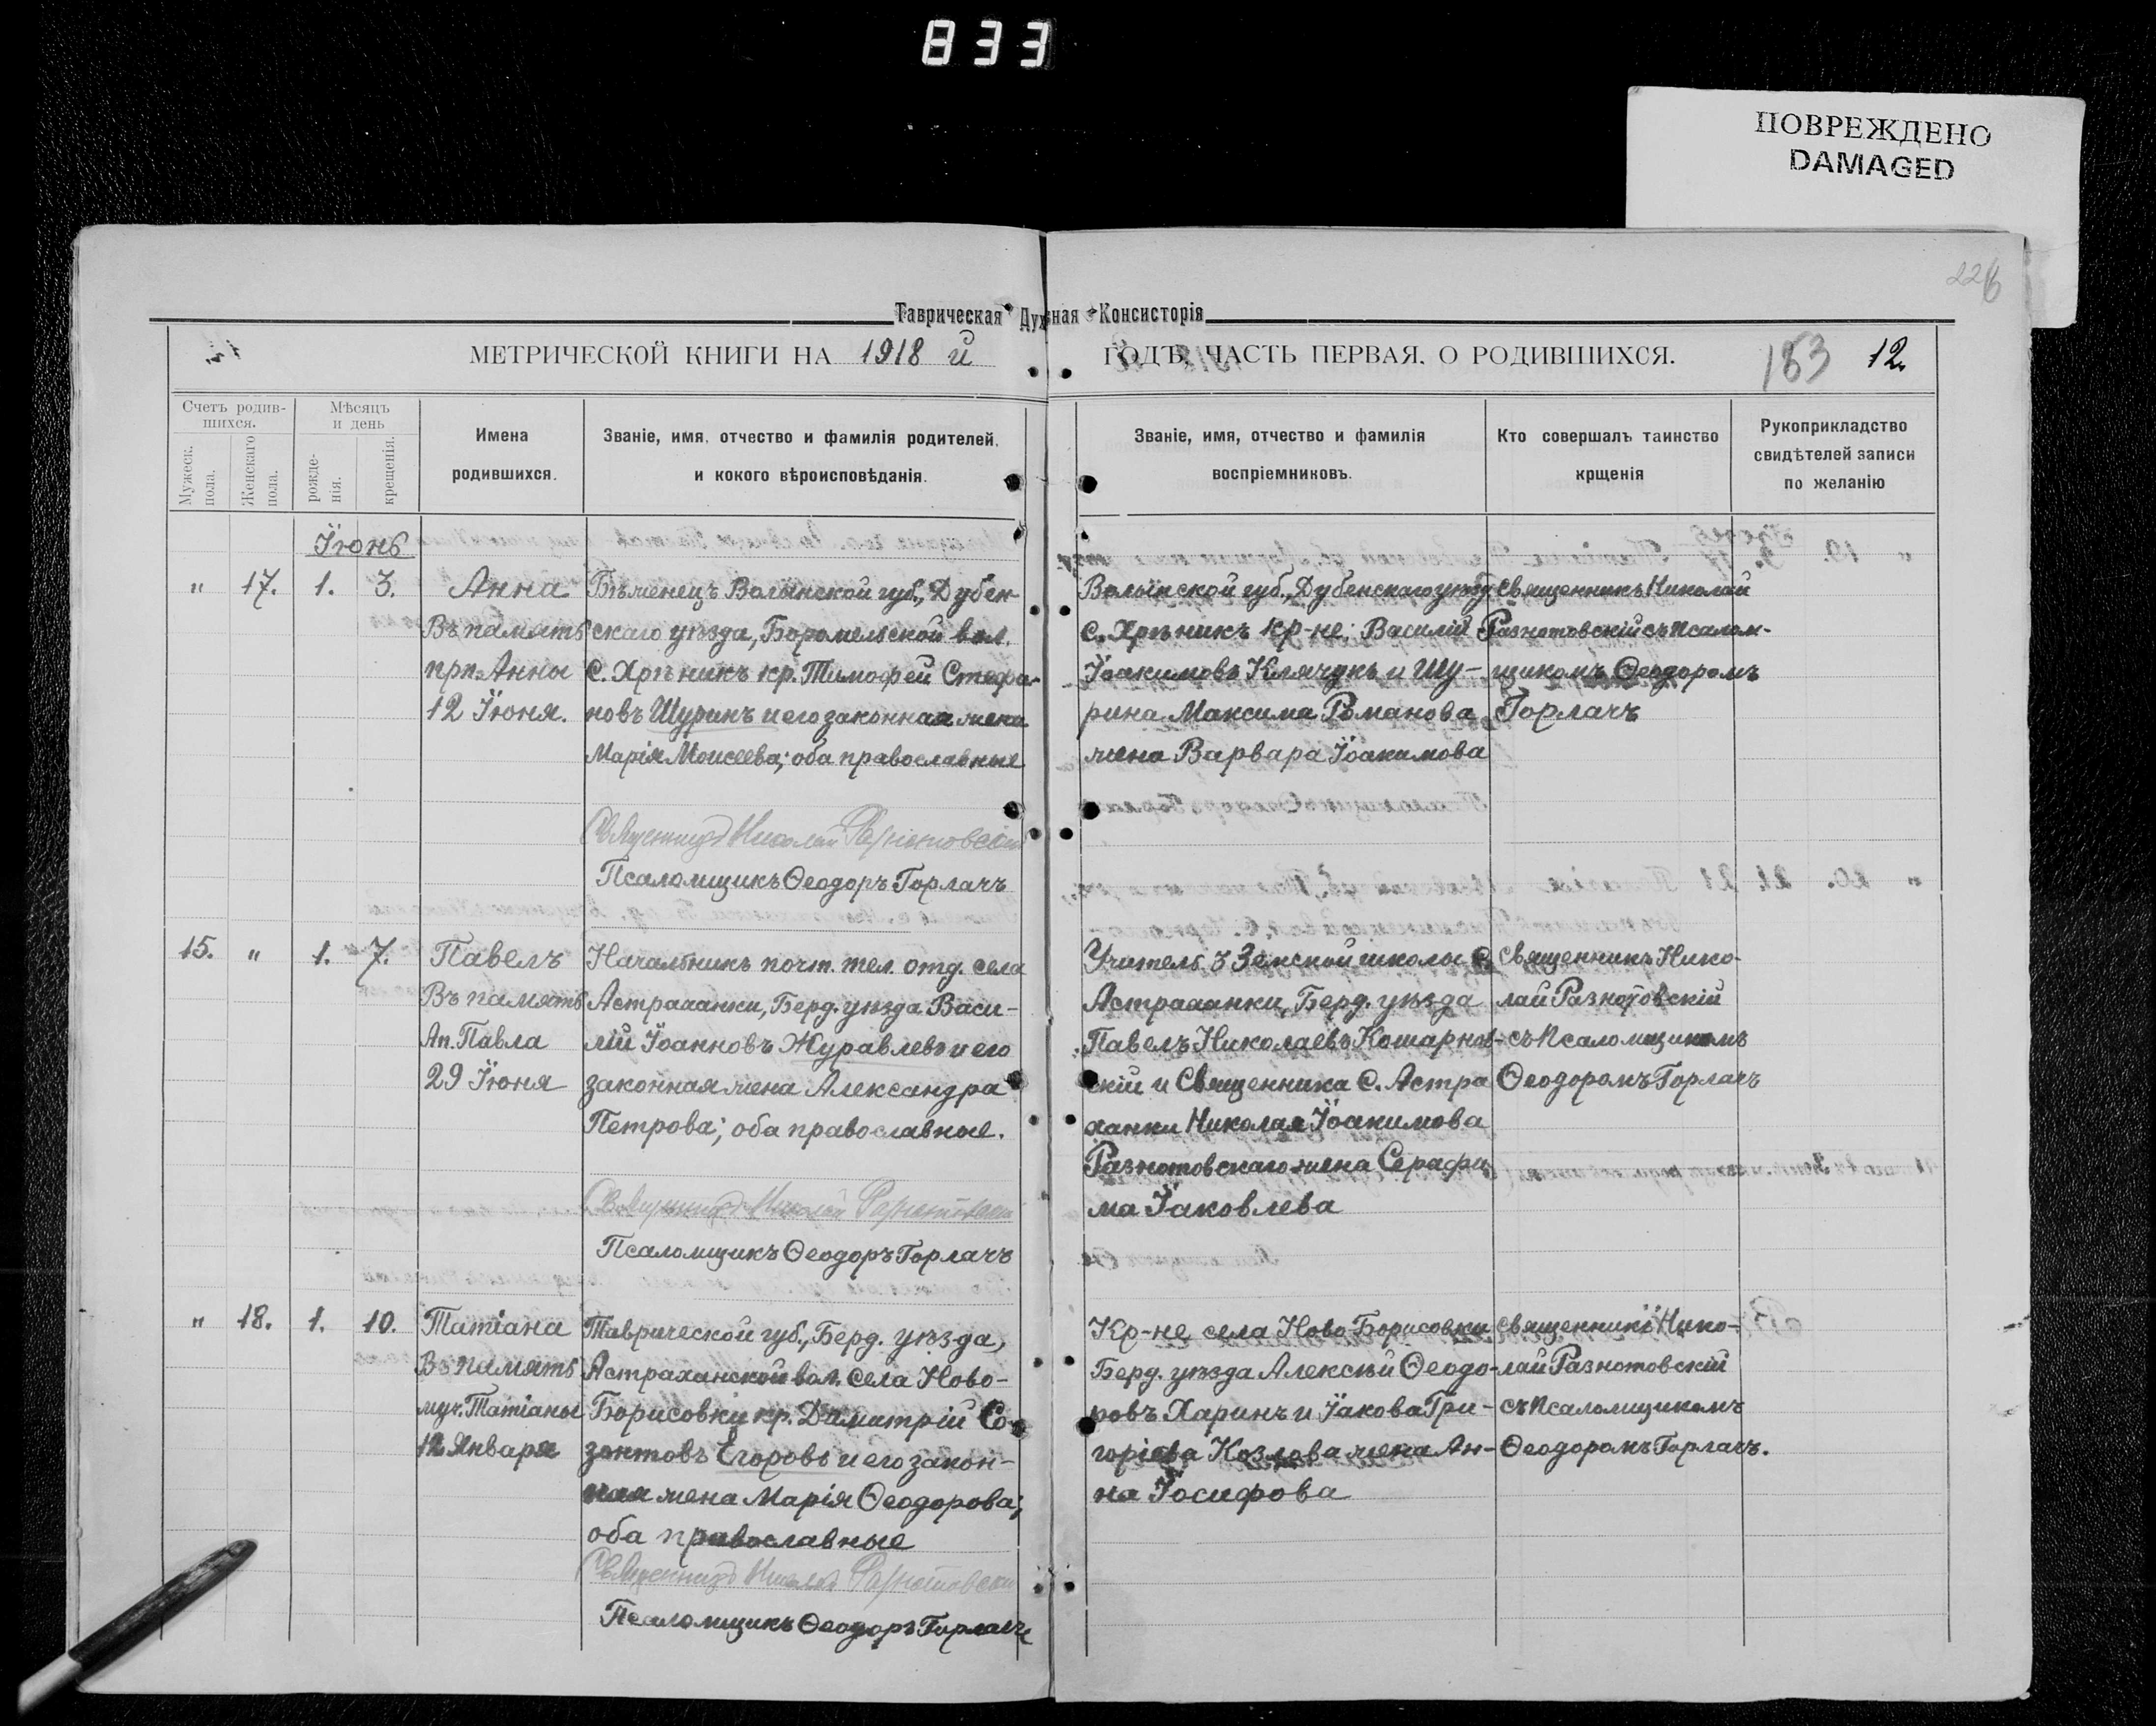 833
ПОВРЕЖДЕНО
DAMAGED
226
Таврическая Духная Консисторія
МЕТРИЧЕСКОЙ КНИГИ НА 1918 й
ГОДЪ, ЧАСТЬ ПЕРВАЯ, О РОДИВШИХСЯ.
183 12.
Счетъ родив-
шихся.
Мужеск.
пола.
Женскаго
пола.
Мѣсяцъ
и день
рожде-
нія.
крещенія.
Имена
родившихся.
Званіе, имя, отчество и фамилія родителей,
и кокого вѣроисповѣданія.
Званіе, имя, отчество и фамилія
воспріемниковъ.
Кто совершалъ таинство
крщенія
Рукоприкладство
свидѣтелей записи
по желанію
Їюнь
" 17. 1. 3.
Анна
Въ память
прп. Анны
12 Їюня.
Бѣженецъ Волынской губ., Дубен-
скаго уѣзда, Боромельской вол.
С. Хрѣникъ кр. Тимофей Стефа-
новъ Шуринъ и его законная жена
Марія Моисеева; оба православные
Священникъ Николай Разнотовскій
Псаломщикъ Ѳеодоръ Горлачъ
Волынской губ., Дубенскаго уѣзд.
С. Хрѣникъ кр-не: Василій
Їоакимовъ Клячукъ и Шу-
рина Максима Романова
жена Варвара Їоакимова
Священникъ Николай
Разнотовскій съ псалом-
щикомъ Ѳеодоромъ
Горлачъ
15. " 1. 7.
Павелъ
Въ память
Ап. Павла
29 Їюня
Начальникъ почт. тел. отд. села
Астраханки, Берд. уѣзда Васи-
лій Їоанновъ Журавлевъ и его
законная жена Александра
Петрова; оба православные.
Священникъ Николай Разнотовскій
Псаломщикъ Ѳеодоръ Горлачъ
Учитель 3 Земской школы С.
Астраханки, Берд. уѣзда
Павелъ Николаевъ Кошарнов-
скій и Священника С. Астра
ханки Николая Їоакимова
Разнотовскаго жена Серафи
ма Їаковлева
Священникъ Нико-
лай Разнотовскій
съ псаломщикомъ
Ѳеодоромъ Горлачъ
" 18. 1. 10.
Татіана
Въ память
муч. Татіаны
12 Января
Таврической губ., Берд. уѣзда,
Астраханской вол. села Ново-
Борисовки кр. Димитрій Со-
зонтовъ Егоровъ и его закон-
ная жена Марія Ѳеодорова;
оба православные
Священникъ Николай Разнотовскій
Псаломщикъ Ѳеодоръ Горлачъ
Кр-не села Ново Борисовки
Берд. уѣзда Алексѣй Ѳеодо-
ровъ Харинъ и Їакова Гри-
горіева Козлова жена Ан-
на Їосифова
Священникъ Нико-
лай Разнотовскій
съ псаломщикомъ
Ѳеодоромъ Горлачъ.